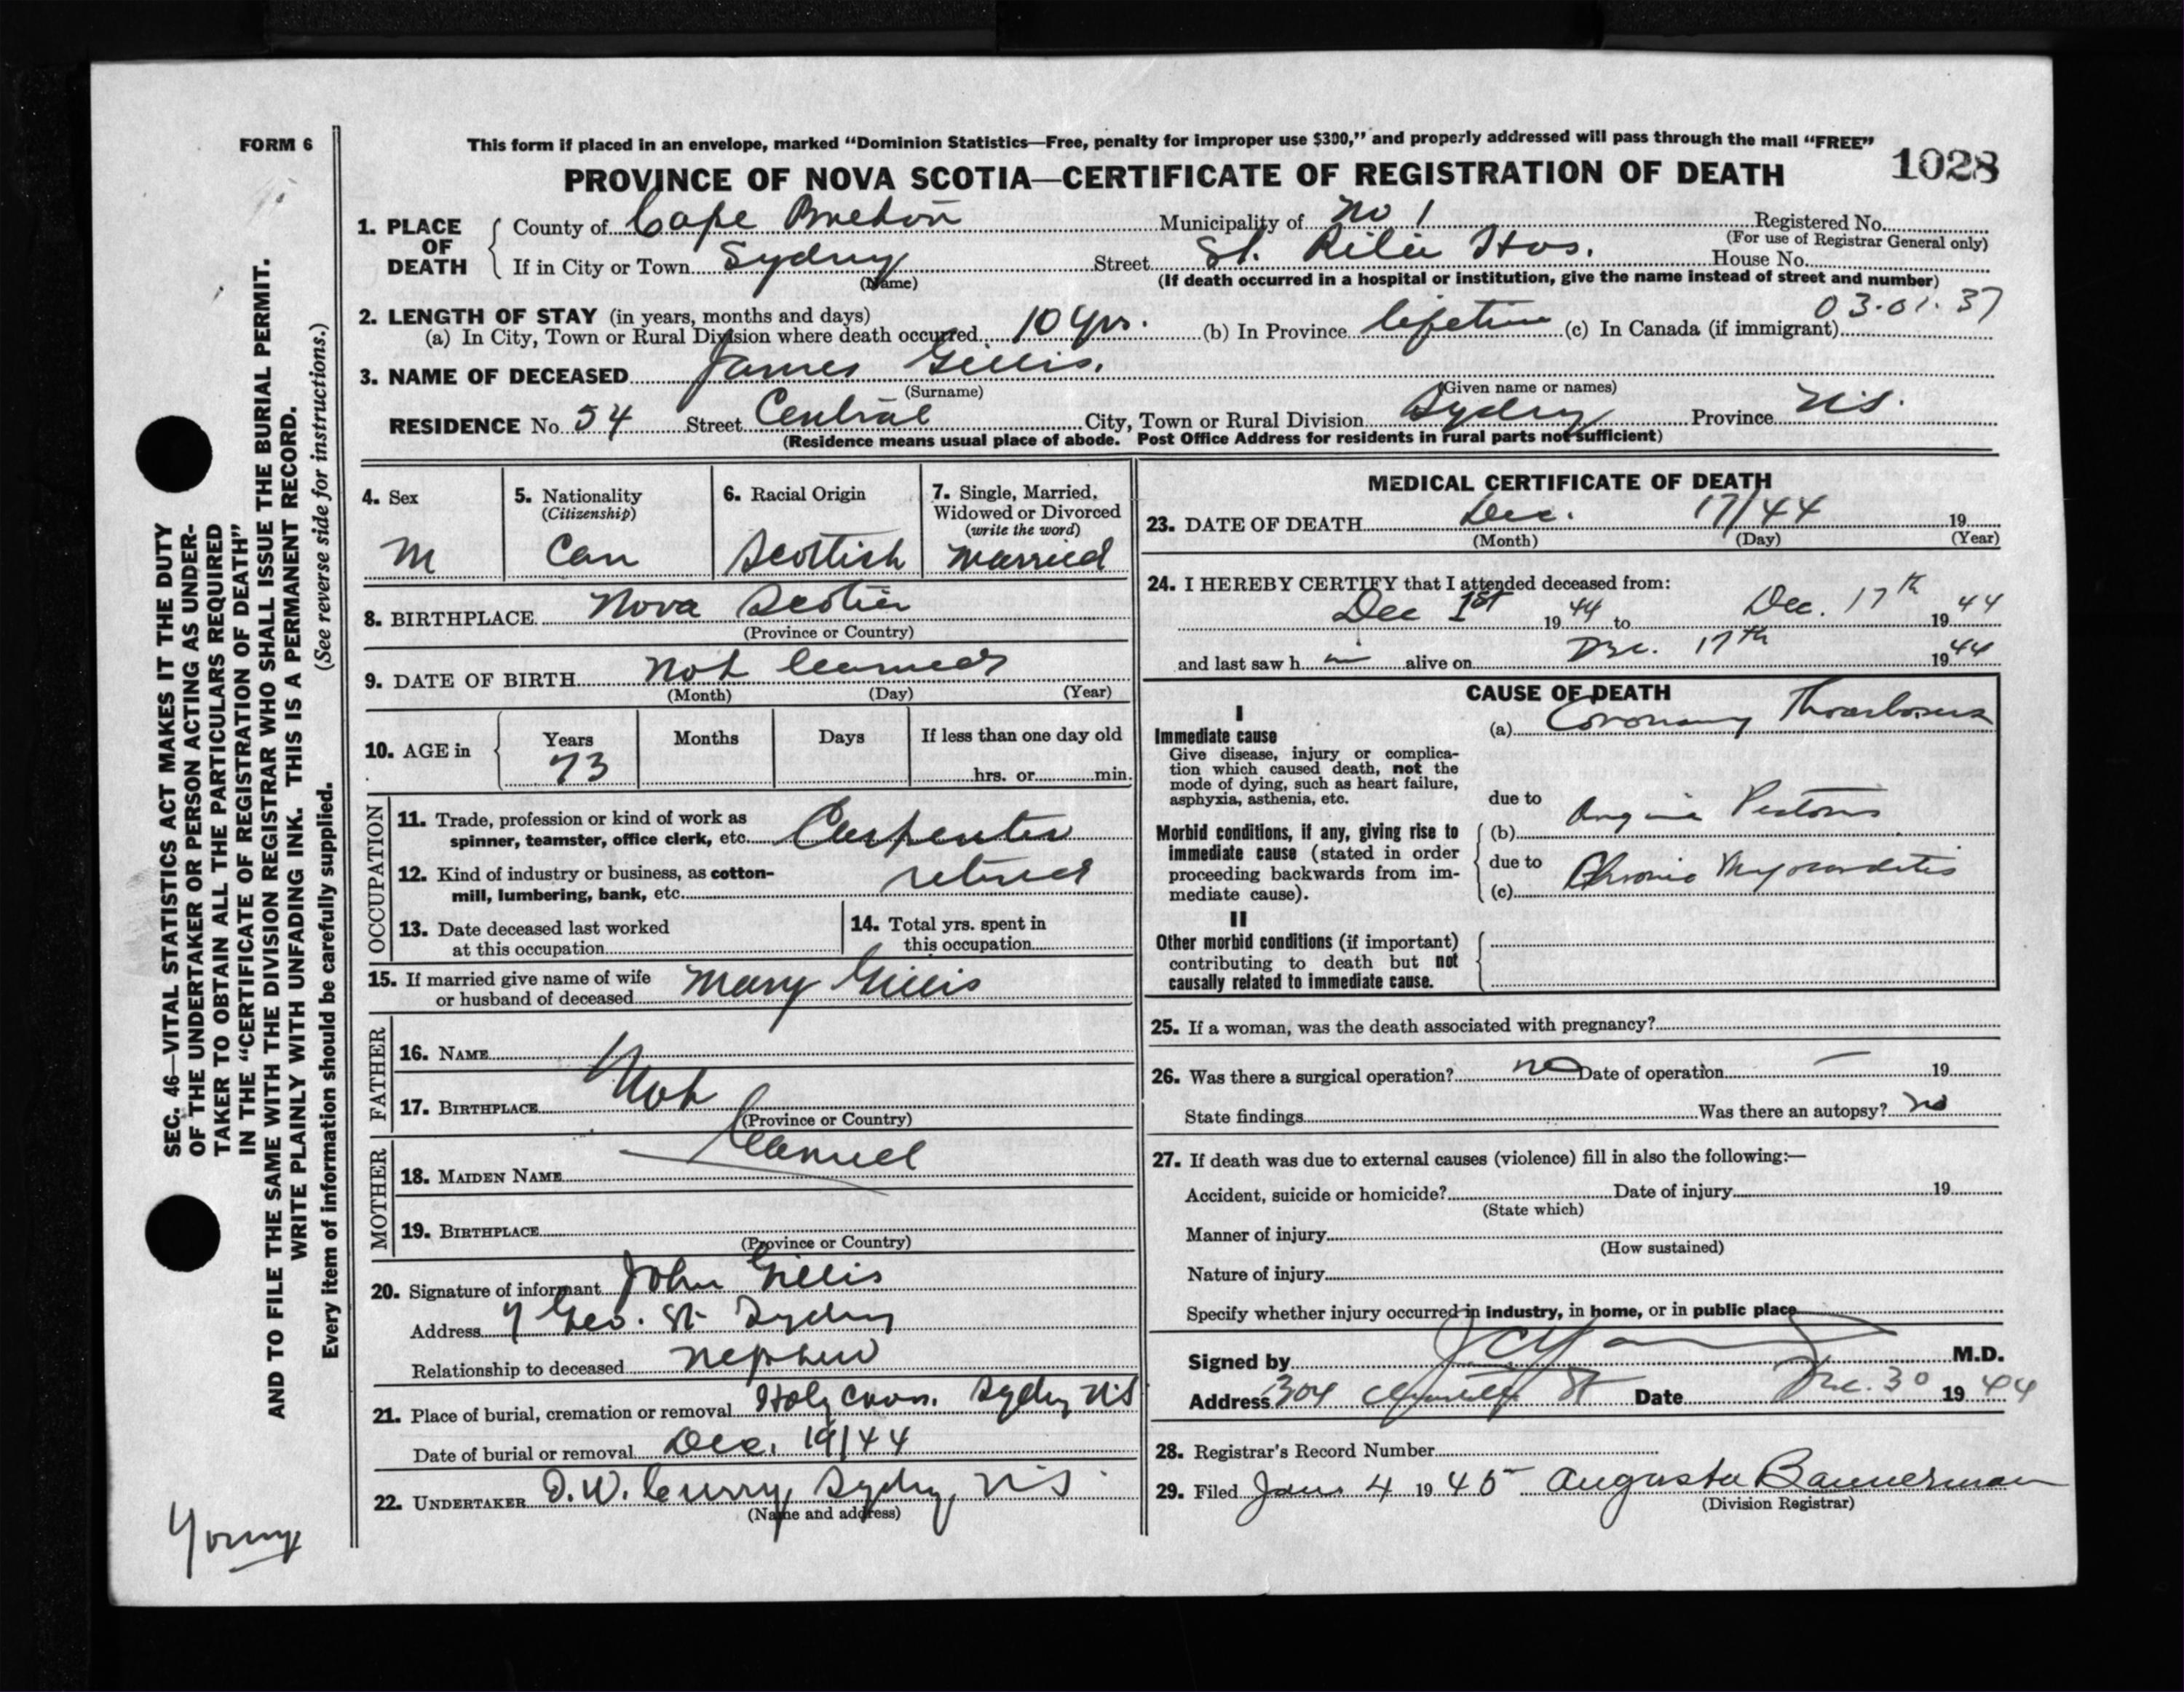 FORM 6
This form if placed in an envelope, marked “Dominion Statistics—Free, penalty for improper use $300,” and properly addressed will pass through the mail “FREE”
PROVINCE OF NOVA SCOTIA—CERTIFICATE OF REGISTRATION OF DEATH 1028
1. PLACE OF DEATH
County of Cape Breton Municipality of No 1 Registered No.
(For use of Registrar General only)
If in City or Town Sydney Street St. Rita Hos. House No.
(Name) (If death occurred in a hospital or institution, give the name instead of street and number)
03.01.37
2. LENGTH OF STAY (in years, months and days)
(a) In City, Town or Rural Division where death occurred 10 yrs. (b) In Province lifetime (c) In Canada (if immigrant)
3. NAME OF DECEASED James Gillis.
(Surname) (Given name or names)
RESIDENCE No. 54 Street Central City, Town or Rural Division Sydney Province N.S.
(Residence means usual place of abode. Post Office Address for residents in rural parts not sufficient)
4. Sex
M
5. Nationality
(Citizenship)
Can
6. Racial Origin
Scottish
7. Single, Married,
Widowed or Divorced
(write the word)
Married
8. BIRTHPLACE Nova Scotia
(Province or Country)
9. DATE OF BIRTH Not learned
(Month) (Day) (Year)
10. AGE in
Years Months Days If less than one day old
73 hrs. or min.
OCCUPATION
11. Trade, profession or kind of work as
spinner, teamster, office clerk, etc. Carpenter
12. Kind of industry or business, as cotton-
mill, lumbering, bank, etc. retired
13. Date deceased last worked
at this occupation
14. Total yrs. spent in
this occupation
15. If married give name of wife
or husband of deceased Mary Gillis
FATHER
16. NAME
Not
17. BIRTHPLACE
(Province or Country)
MOTHER
learned
18. MAIDEN NAME
19. BIRTHPLACE
(Province or Country)
20. Signature of informant John Gillis
Address 7 Geo. St Sydney
Relationship to deceased nephew
21. Place of burial, cremation or removal Holy Cross. Sydney NS
Date of burial or removal Dec. 19/44
22. UNDERTAKER D.W. Curry, Sydney, N.S.
(Name and address)
MEDICAL CERTIFICATE OF DEATH
23. DATE OF DEATH Dec. 17/44 19
(Month) (Day) (Year)
24. I HEREBY CERTIFY that I attended deceased from:
Dec 1st 1944 to Dec. 17th 1944
and last saw h im alive on Dec. 17th 1944
CAUSE OF DEATH
I
Immediate cause (a) Coronary Thrombosis
Give disease, injury or complica-
tion which caused death, not the
mode of dying, such as heart failure,
asphyxia, asthenia, etc.
due to
Morbid conditions, if any, giving rise to (b) Angina Pectoris
immediate cause (stated in order
due to
proceeding backwards from im-
mediate cause). (c) Chronic Myocarditis
II
Other morbid conditions (if important)
contributing to death but not
causally related to immediate cause.
25. If a woman, was the death associated with pregnancy?
26. Was there a surgical operation? no Date of operation — 19
State findings Was there an autopsy? no
27. If death was due to external causes (violence) fill in also the following:—
Accident, suicide or homicide? Date of injury 19
(State which)
Manner of injury
(How sustained)
Nature of injury
Specify whether injury occurred in industry, in home, or in public place
Signed by M.D.
Address 304 St Date Dec. 30 1944
28. Registrar's Record Number
29. Filed Jan 4 1945 Augusta Bannerman
(Division Registrar)
SEC. 46—VITAL STATISTICS ACT MAKES IT THE DUTY
OF THE UNDERTAKER OR PERSON ACTING AS UNDER-
TAKER TO OBTAIN ALL THE PARTICULARS REQUIRED
IN THE “CERTIFICATE OF REGISTRATION OF DEATH”
AND TO FILE THE SAME WITH THE DIVISION REGISTRAR WHO SHALL ISSUE THE BURIAL PERMIT.
WRITE PLAINLY WITH UNFADING INK. THIS IS A PERMANENT RECORD.
(See reverse side for instructions.)
Every item of information should be carefully supplied.
Young